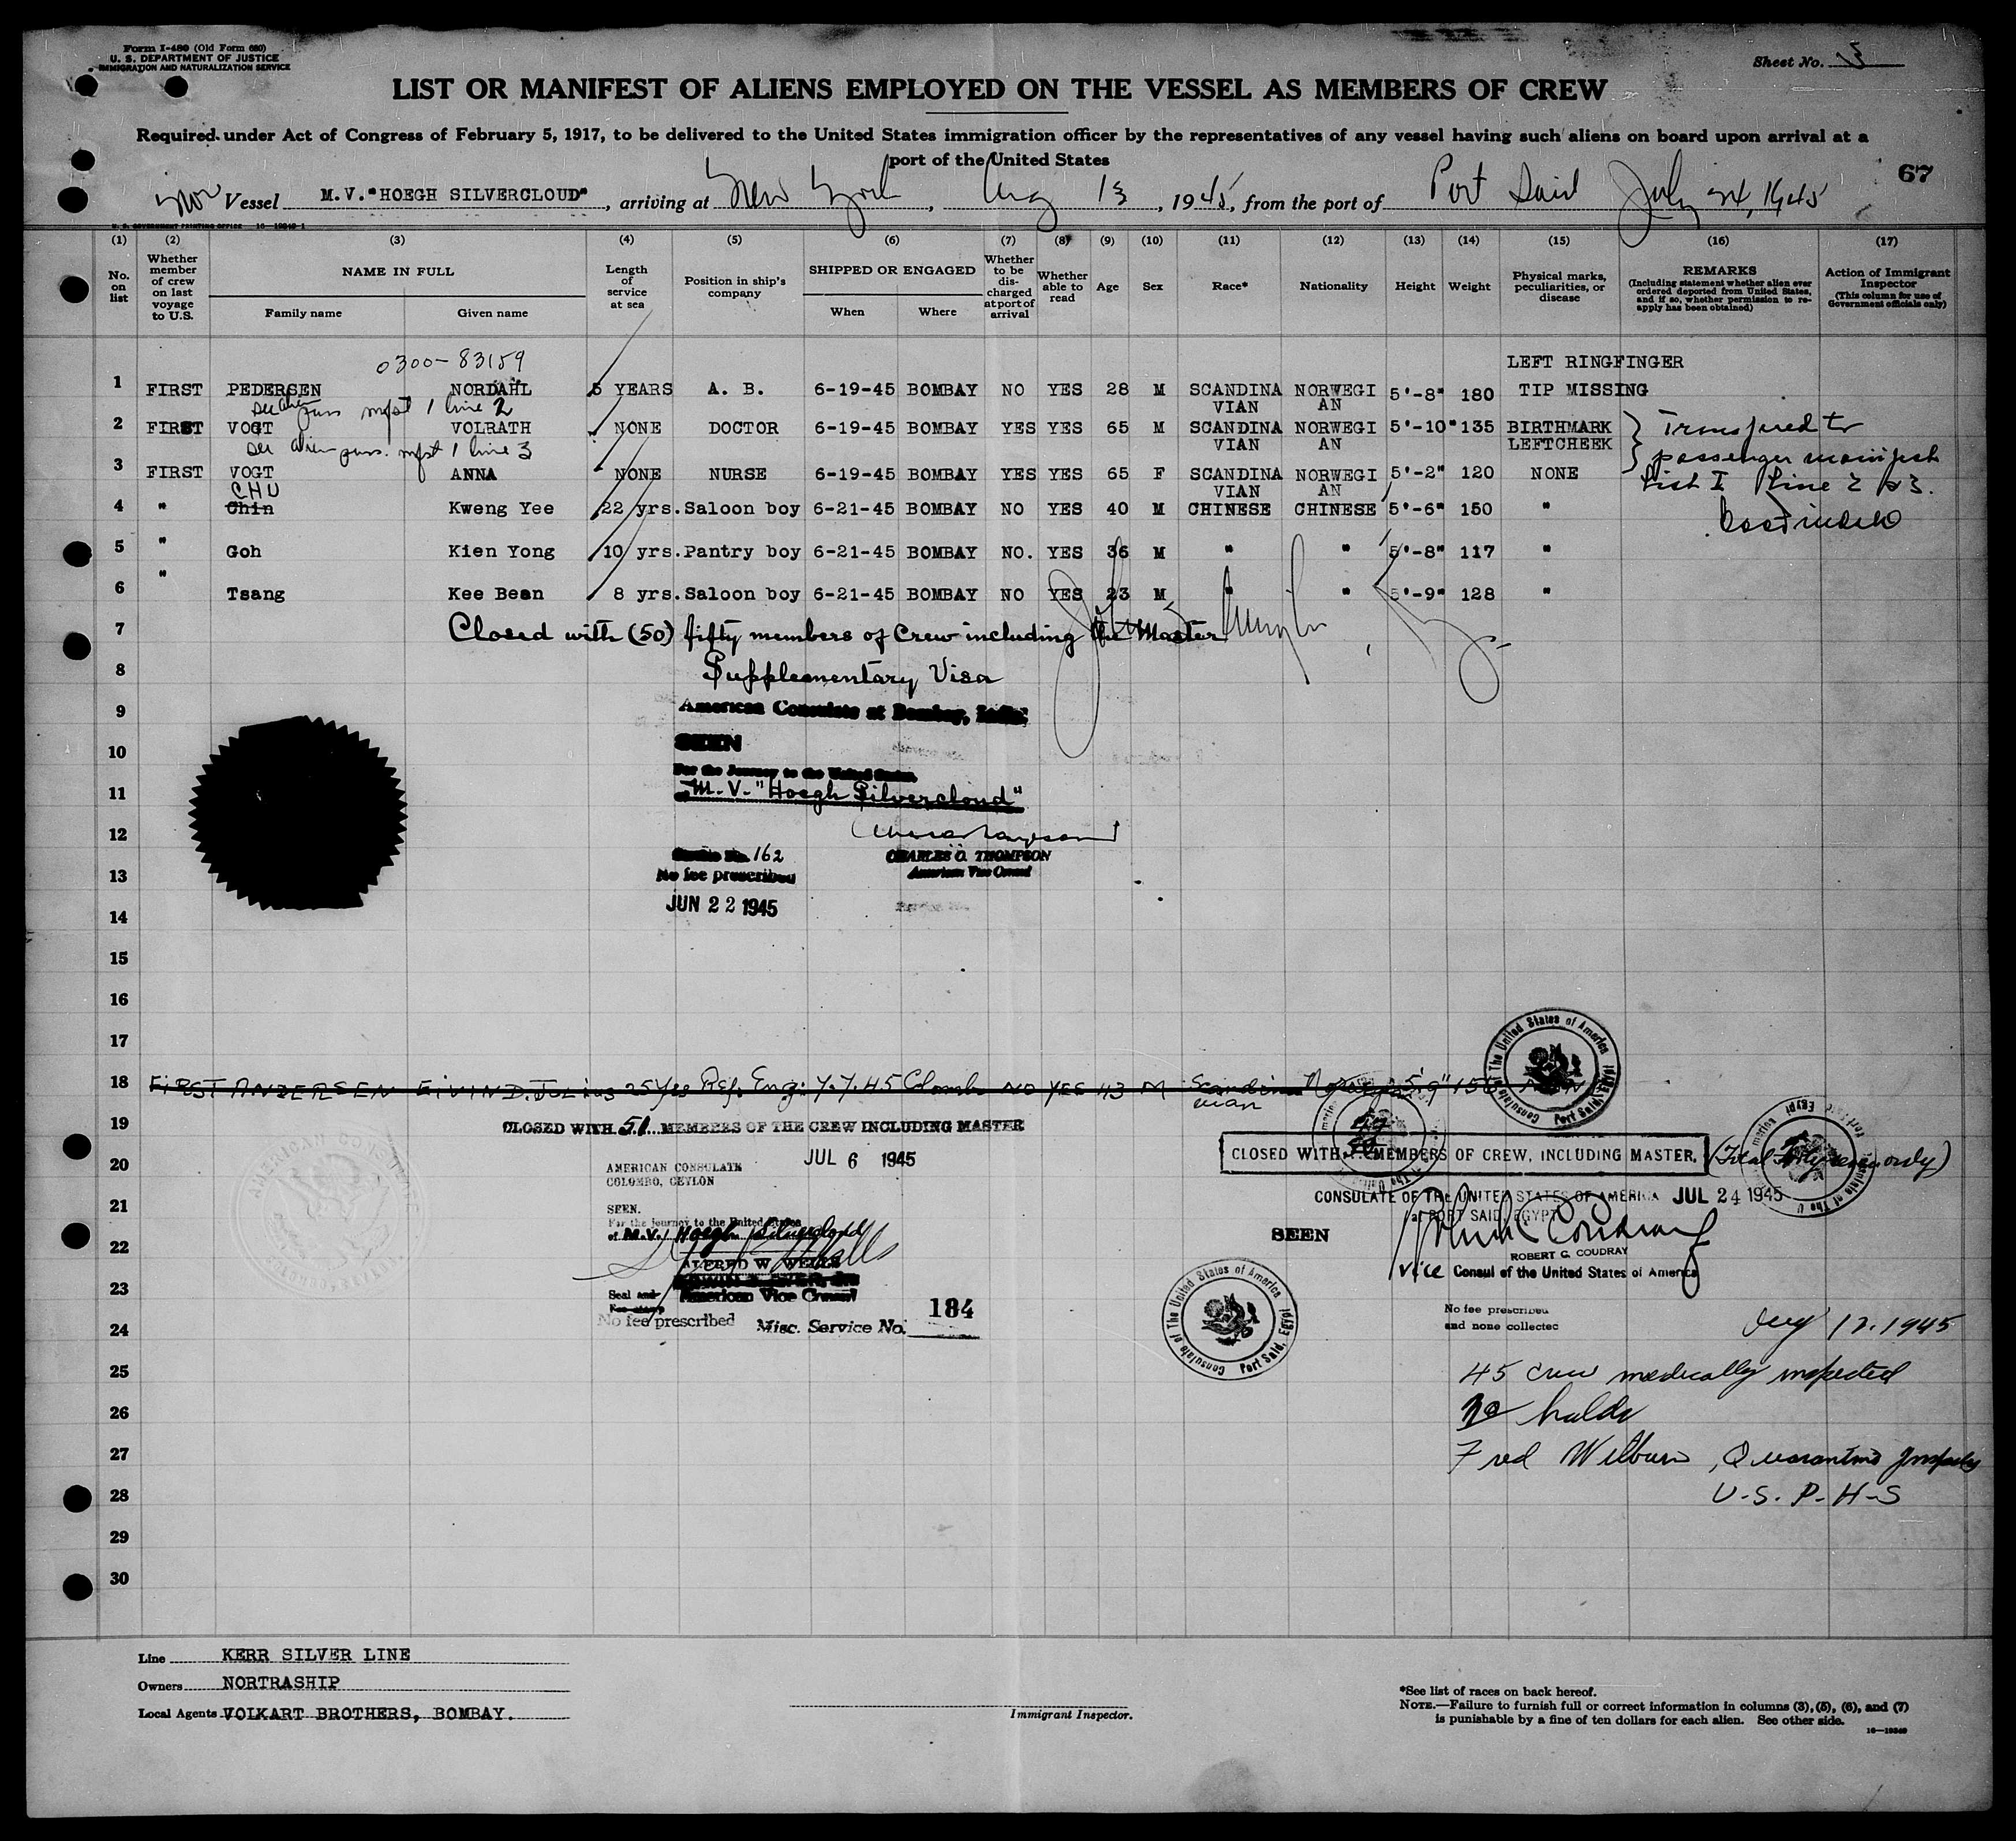 Form I-480 (Old Form 680)
U. S. DEPARTMENT OF JUSTICE
IMMIGRATION AND NATURALIZATION SERVICE
Sheet No. 3
LIST OR MANIFEST OF ALIENS EMPLOYED ON THE VESSEL AS MEMBERS OF CREW
Required under Act of Congress of February 5, 1917, to be delivered to the United States immigration officer by the representatives of any vessel having such aliens on board upon arrival at a
port of the United States
67
Nor Vessel M.V."HOEGH SILVERCLOUD", arriving at New York, Aug 13, 1945, from the port of Port Said July 24, 1945
U. S. GOVERNMENT PRINTING OFFICE
(1) (2) (3) (4) (5) (6) (7) (8) (9) (10) (11) (12) (13) (14) (15) (16) (17)
No. on list
Whether member of crew on last voyage to U.S.
NAME IN FULL
Family name Given name
Length of service at sea
Position in ship's company
SHIPPED OR ENGAGED
When Where
Whether to be discharged at port of arrival
Whether able to read
Age
Sex
Race*
Nationality
Height
Weight
Physical marks, peculiarities, or disease
REMARKS
(Including statement whether alien ever ordered deported from United States, and if so, whether permission to re-apply has been obtained)
Action of Immigrant Inspector
(This column for use of Government officials only)
0300-83159
LEFT RINGFINGER
1 FIRST PEDERSEN NORDAHL 5 YEARS A. B. 6-19-45 BOMBAY NO YES 28 M SCANDINA NORWEGI 5'-8" 180 TIP MISSING
VIAN AN
see alien pass mfst 1 line 2
2 FIRST VOGT VOLRATH NONE DOCTOR 6-19-45 BOMBAY YES YES 65 M SCANDINA NORWEGI 5'-10" 135 BIRTHMARK
VIAN AN LEFTCHEEK
see alien pass. mfst 1 line 3
3 FIRST VOGT ANNA NONE NURSE 6-19-45 BOMBAY YES YES 65 F SCANDINA NORWEGI 5'-2" 120 NONE
VIAN AN
Transfered to
passenger manifest
List I Line 2 & 3.
CHU
4 " Chin Kweng Yee 22 yrs. Saloon boy 6-21-45 BOMBAY NO YES 40 M CHINESE CHINESE 5'-6" 150 "
5 " Goh Kien Yong 10 yrs. Pantry boy 6-21-45 BOMBAY NO. YES 36 M " " 5'-8" 117 "
6 " Tsang Kee Bean 8 yrs. Saloon boy 6-21-45 BOMBAY NO YES 23 M " " 5'-9" 128 "
7 Closed with (50) fifty members of Crew including the Master
8 Supplementary Visa
9 American Consulate at Bombay, India
10 SEEN
For the Journey to the United States,
11 M.V. "Hoegh Silvercloud"
12
Service No. 162 CHARLES O. THOMPSON
13 No fee prescribed American Vice Consul
14 JUN 22 1945
15
16
17
18 FIRST ANDERSEN EIVIND.JULIUS 25 Yrs Ref. Eng: 7.7.45 Colombo NO YES 43 M Scandina 5'9"
vian
19 CLOSED WITH 51 MEMBERS OF THE CREW INCLUDING MASTER
20 JUL 6 1945
AMERICAN CONSULATE
COLOMBO, CEYLON
21 SEEN.
For the journey to the United States
22 of M.V. Hoegh Silvercloud
ALFRED W. WELLS
23 Seal and American Vice Consul
Fee stamp
24 No fee prescribed Misc. Service No. 184
CLOSED WITH MEMBERS OF CREW, INCLUDING MASTER.
CONSULATE OF THE UNITED STATES OF AMERICA JUL 24 1945
at PORT SAID, EGYPT
SEEN
ROBERT C. COUDRAY
Vice Consul of the United States of America
No fee prescribed
and none collected
Consulate of The United States of America Port Said, Egypt
Consulate of The United States of America Port Said, Egypt
Aug 12. 1945
25 45 crew medically inspected
26 no holds
27 Fred Wilburn, Quarantine Inspector
28 U.S.P.H.S
29
30
Line KERR SILVER LINE
Owners NORTRASHIP
Local Agents VOLKART BROTHERS, BOMBAY.
Immigrant Inspector.
*See list of races on back hereof.
NOTE.—Failure to furnish full or correct information in columns (3), (5), (6), and (7)
is punishable by a fine of ten dollars for each alien. See other side.